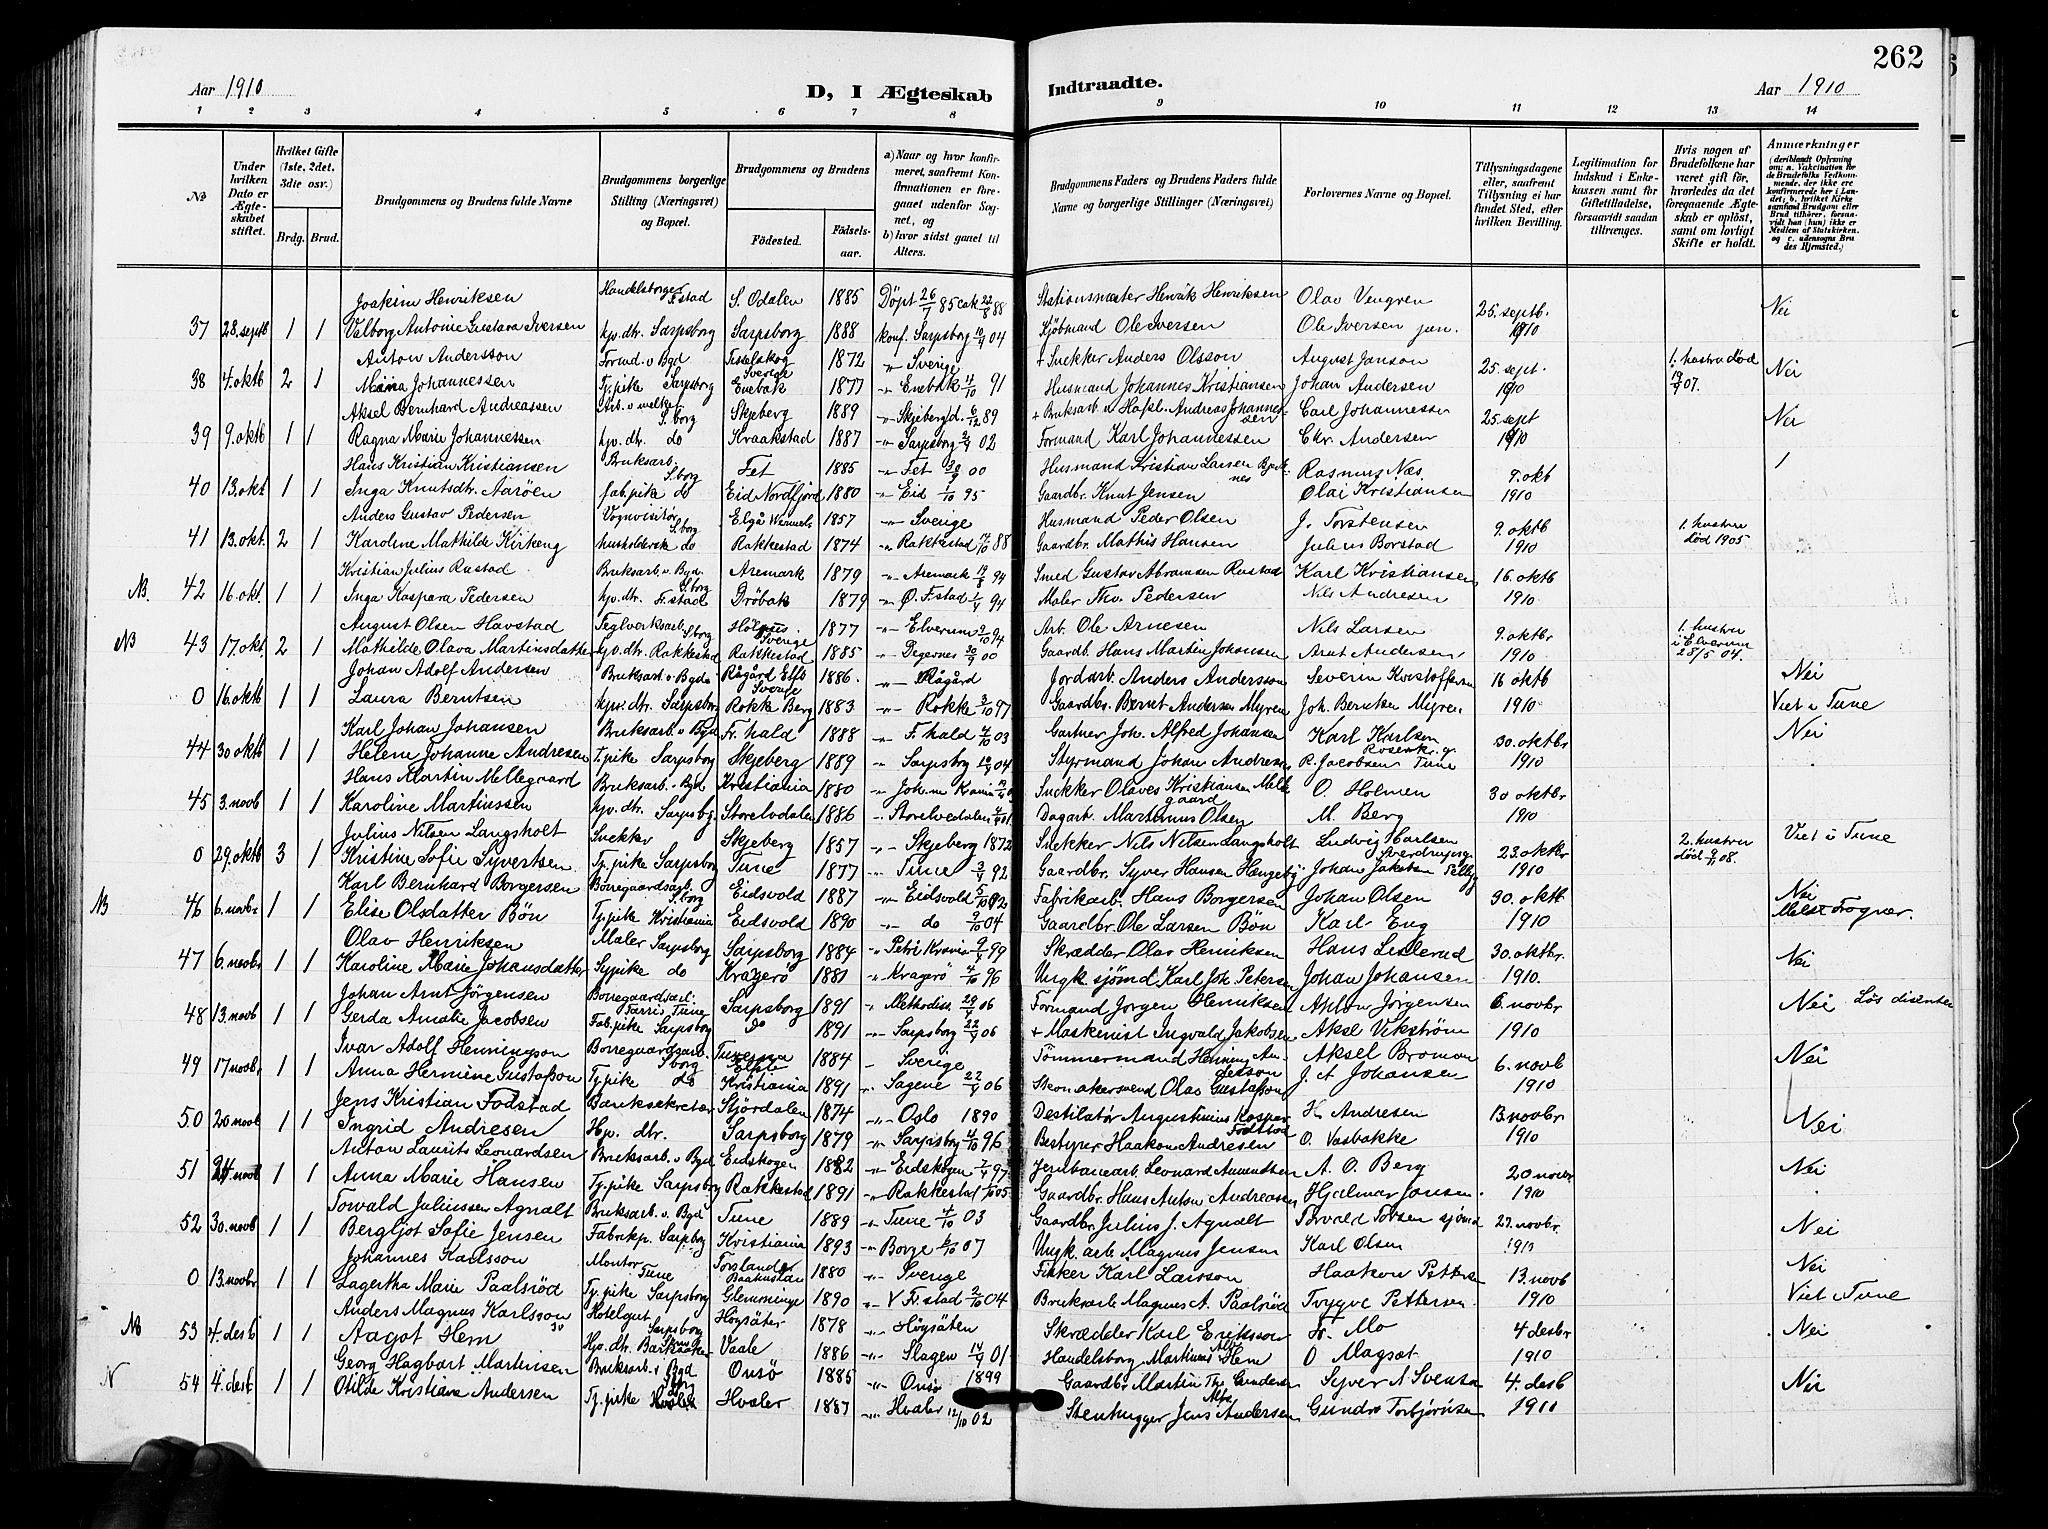 262
Aar 1910
D, I Ægteskab
Indtraadte.
Aar 1910
1 2 3 4 5 6 7 8 9 10 11 12 13 14
No
Under hvilken Dato er Ægteskabet stiftet.
Hvilket Gifte (1ste, 2det, 3die osv.)
Brdg. Brud.
Brudgommens og Brudens fulde Navne
Brudgommens borgerlige Stilling (Næringsvei) og Bopæl.
Brudgommens og Brudens
Fødested.
Fødselsaar.
a) Naar og hvor konfirmeret, saafremt Konfirmationen er foregaaet udenfor Sognet, og
b) hvor sidst gaaet til Alters.
Brudgommens Faders og Brudens Faders fulde Navne og borgerlige Stillinger (Næringsvei)
Forlovernes Navne og Bopæl.
Tillysningsdagene eller, saafremt Tillysning ei har fundet Sted, efter hvilken Bevilling.
Legitimation for Indskud i Enkekassen samt for Giftetilladelse, forsaavidt saadan tiltrænges.
Hvis nogen af Brudefolkene har været gift før, hvorledes da det foregaaende Ægteskab er opløst, samt om lovligt Skifte er holdt.
Anmerkninger
Joakim Henriksen Handelsborger F.stad S. Odalen 1885 Døpt 26/7 85 Stationsmester Henrik Henriksen Olav Vengren 25. septb. Nei
37 28. septb 1 1 Valborg Antonie Gustava Iversen hp. dtr. Sarpsborg Sarpsborg 1888 konf. Sarpsborg 04 Kjøbmand Ole Iversen Ole Iversen jun. 1910
Anton Andersson Formd. v Bgd Tisselskog Sverige 1872 " Sverige + Snekker Anders Olsson August Janson 25 sept. 1. hustru død Nei
38 4. oktb 2 1 Mina Johannessen Tj. pike Sarpsborg Enebak 1877 " Enebak 4/10 91 Husmand Johannes Kristiansen Johan Andersen 1910 07.
Aksel Bernhard Andreassen S.borg Skjeberg 1889 " Skjeberg + Bruksarb. Andreas Johannessen Carl Johannessen 25 sept Nei
39 9. oktb 1 1 Ragna Marie Johannessen hp. dtr. do Kraakstad 1887 " Sarpsborg 02 Formand Karl Johannessen Chr. Andersen 1910
Hans Kristian Kristiansen Bruksarb. S.borg Fet 1885 " Fet 30/9 00 Husmand Kristian Larsen Rasmus Næs 9. okb
40 13. okt 1 1 Inga Knutsdtr. Aarøen fab. pike do Eid Nordfjord 1880 " Eid 1/10 95 Gaardbr. Knut Jensen Olai Kristiansen 1910
Anders Gustav Pedersen Vognvisitør S.borg Elgå 1857 " Sverige Husmand Peder Olsen J. Torstensen 9. oktb 1. hustru død 1905
41 13. okt. 2 1 Karoline Mathilde Kirkeng husholderske do Rakkestad 1874 " Rakkestad 88 Gaardbr. Mathis Hansen Julius Borstad 1910
Kristian Julius Rustad Bruksarb. v. Bgd. S.borg Aremark 1879 " Aremark 94 Smed Gustav Abramsen Rustad Karl Kristiansen 16. oktb
42 16. okt. 1 1 Inga Kaspara Pedersen hp. dtr. F.stad Drøbak 1879 " Ø. F.stad 1/4 94 Maler Thv. Pedersen Nils Andresen 1910
August Olsen Havstad Teglverksarb. S.borg Sverige 1877 " Elverum 94 Arb. Ole Arnesen Nils Larsen 9. oktbr 1. hustru i Elverum 28/5 04.
NB 43 17. okt. 2 1 Mathilde Olava Martinsdatter hp. dtr. Rakkestad Rakkestad 1885 " Degernes 30/9 00 Gaardb. Hans Martin Johansen Arnt Andersen 1910
Johan Adolf Andersen Bruksarb. v. Bgd. Rågård Elfsb Sverige 1886. " Rågård Jordarb. Anders Andersson Severin Kristoffersen 16 oktb Nei
0 16. oktb 1 1 Laura Berntsen hp. dtr. Sarpsborg Rokke Berg 1883 " Rokke 3/10 97 Gaardbr. Bernt Andersen Myren Joh. Berntsen Myren 1910 Viet i Tune
Karl Johan Johansen Bruksarb. v Bgd Fr. hald 1888 " F. hald 4/10 03 Gartner Joh. Alfred Johansen Karl Karlsen 30. oktbr Nei
44 30 oktb 1 1 Helene Johanne Andresen T. pike Sarpsborg Skjeberg 1889 " Sarpsbg 04 Styrmand Johan Andresen R. Jacobsen Tune 1910
Hans Martin Mellegaard Bruksarb. v. Bgd Kristiania 1880 Snekker Olaves Kristiansen Mellegaard O. Holmen 30 oktbr
45 3. novb 1 1 Karoline Martinssen hp. dtr. Sarpsbg. Storelvdalen 1886 " Storelvedalen Dagarb. Martinus Olsen M. Berg 1910
Julius Nilsen Langsholt Snekker Skjeberg 1857 " Skjeberg 1872 Snekker Nils Nilsen Langsholt Ludvig Karlsen 2. hustru Viet i Tune
0 29. oktb 3 1 Kristine Sofie Syvertsen Tj. pike Sarpsborg Tune 1877 " Tune 3/4 92 Gaardbr. Syver Hansen Johan Jakobsen 23. oktbr 1910 død 08.
Karl Bernhard Borgersen Borregaardsarb. S.borg Eidsvold 1887 " Eidsvold 5/10 02 Fabrikarb. Hans Borgersen Johan Olsen 30. oktb Nei
46 6. novbr 1 1 Elise Olsdatter Bøn Tj. pike Kristiania Eidsvold 1890 " do 9/10 04 Gaardbr. Ole Larsen Bøn Karl Eng 1910 Frogner.
Olav Henriksen Maler Sarpsborg Sarpsborg 1884 " Petri Krania 99 Skrædder Olav Henriksen Hans Lislerud 30. oktbr. Nei
47 6. novbr 1 1 Karoline Marie Johansdatter Sypike do Kragerø 1881 " Kragerø 4/10 96 Ungk. sjømd. Karl Joh. Petersen Johan Johansen 1910.
Johan Arnt Jørgensen Tune Sarpsborg 1891 " Methodist. 06 Formand Jørgen Henriksen Anton Jørgensen 6. novbr Nei Løs disenter
48 13. novb 1 1 Gerda Amalie Jacobsen Fab. pike Sarpsborg do 1891 " Sarpsborg 22/4 06 + Maskinist Ingvald Jakobsen Aksel Vikstrøm 1910
Ivar Adolf Henningson Borregaardsarb. S.borg 1884 " Sverige Tømmermand Henning Anderson Aksel Broman 6. novb Nei
49 17 novb. 1 1 Anna Hermine Gustafson Tj. pike do Kristiania 1891 " Sagene 22/4 06 Skomakersvend Olav Gustafsson J. A. Johansen 1910
Jens Kristian Fodstad Banksekretær Stjørdalen 1874 " Oslo 1890 Destilatør Augustinus Kaspar Fodstad H. Andresen 13. novbr Nei
50 20 novb 1 1 Ingrid Andresen Hp. dtr. Sarpsborg 1879 " Sarpsborg 4/10 96 Bestyrer Haakon Andresen O. Vasbakke 1910
Anton Laurits Leonardsen Bruksarb. v. Bgd Eidskogen 1882 " Eidskogen 97 Jernbanearb. Leonard Amundsen A. O. Berg 20 novbr Nei
51 24. novb 1 1 Anna Marie Hansen Tj. pike Sarpsborg Rakkestad 1891 " Rakkestad 05 Gaardbr. Hans Anton Andreasen Hjalmar Jonsen. 1910
Torvald Juliussen Agnalt Bruksarb. v. Bgd Tune 1889 " Tune 4/10 03 Gaardbr Julius J. Agnalt Torvald Torsen sjømd 27. novbr. Nei
52 30. novb 1 1 Bergljot Sofie Jensen Fabrikp. Sarpsborg Kristiania 1893 " Borge 6/10 07 Ungk. arb Magnus Jensen Karl Olsen 1910
Johannes Karlsson Montør Tune Torslanda 1880 " Sverige Fisker Karl Larsson Haakon Pettersen 13. novb Nei
0 13. novbr 1 1 Lagertha Marie Paalsrød Tj. pike Sarpsborg Glemminge 1890 " V Fr.stad 2/10 04 Bruksarb Magnus A. Paalsrød Trygve Pettersen. 1910 Viet i Tune
Anders Magnus Karlsson Sarpsborg Högsäter 1878 " Högsäten Skrædder Karl Eriksson Fr. Mo 4 desbr Nei
53 4. desb 1 1 Aagot Hem Hp. dtr. Vaale 1886 " Slagen 01 Handelsborg Martinus Hem O Magsæt 1910
Georg Hagbart Martinsen Bruksarb. v Bgd S.borg Onsø 1885 " Onsø 1899 Gaardbr. Martin Th. Gundersen Syver A Svensen 4. desb Nei
N 54 4. desb 1 1 Otilde Kristiane Andersen Tj. pike Hvaler Hvaler 1887 " Hvaler 12/10 02 Stenhugger Jens Andersen Gundr Torbjørnsen 1910